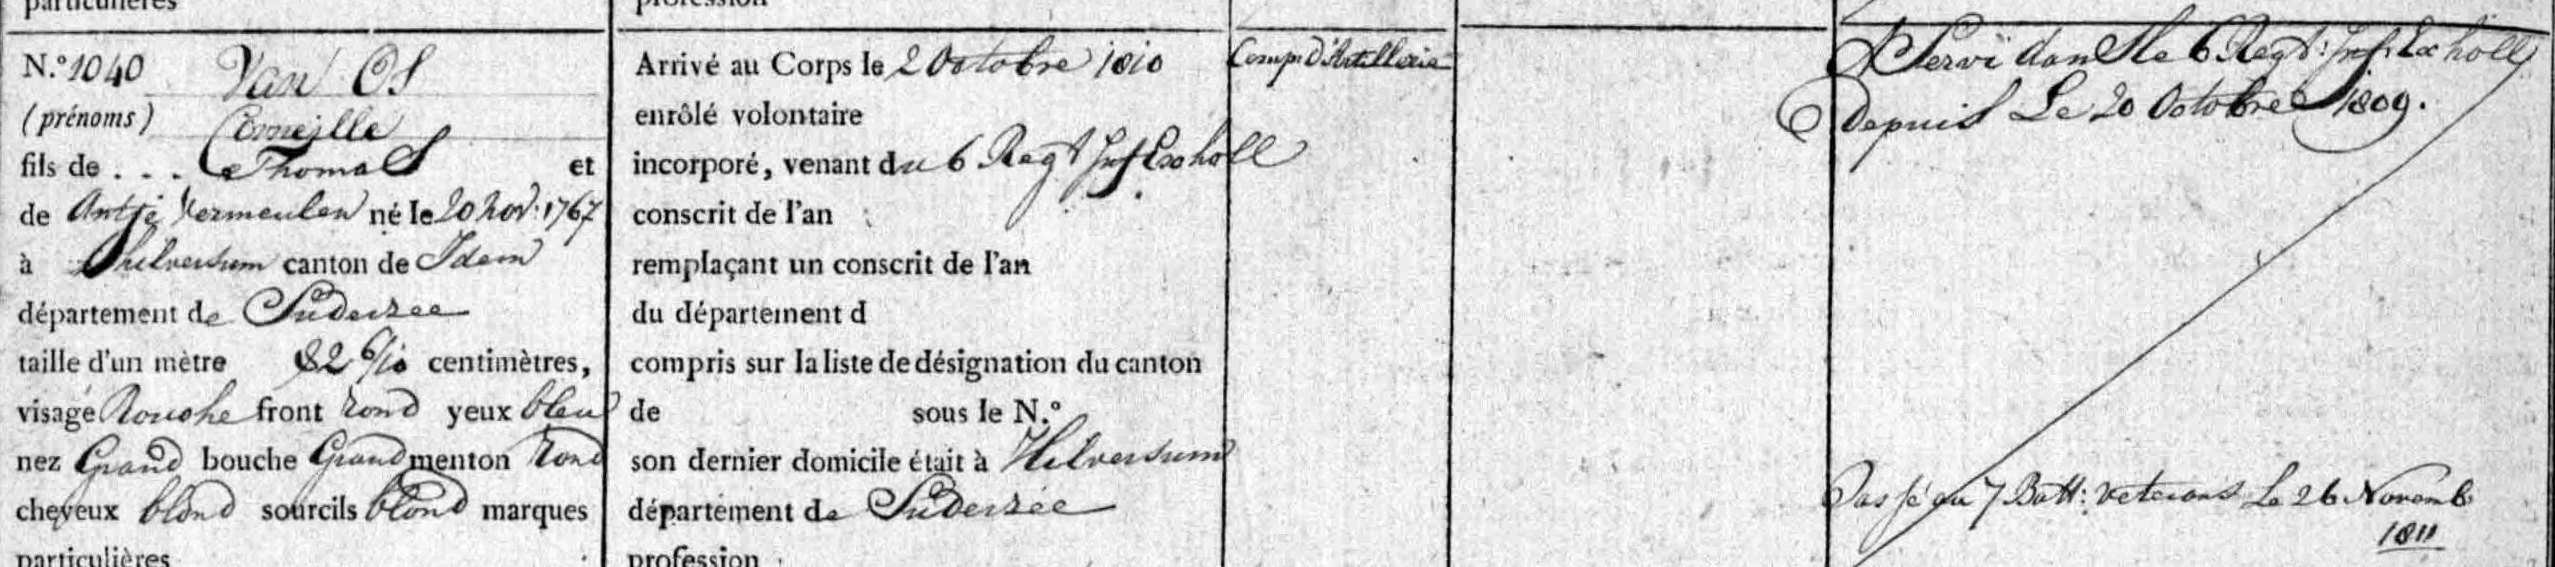 particulières
N.º 1040 Van Os
(prénoms) Corneille
fils de . . . Thomas et
de Antje Vermeulen né le 20 Nov: 1767
à hilversum canton de Idem
département de Suderzee
taille d'un mètre 82 6/10 centimètres,
visage Rouche front rond yeux bleu
nez Grand bouche Grand menton rond
cheveux blond sourcils blond marques
particulières
profession
Arrivé au Corps le 2 Octobre 1810
enrôlé volontaire
incorporé, venant du 6 Regt Inf Exholl
conscrit de l'an
remplaçant un conscrit de l'an
du département d
compris sur la liste de désignation du canton
de sous le N.º
son dernier domicile était à Hilversum
département de Suderzée
profession
Comp: D'Artillerie
A Servi dans le 6 Regt: Inf: Ex holl
depuis Le 20 Octobre 1809.
Passé au 7 Batt: veterans Le 26 Novemb
1811